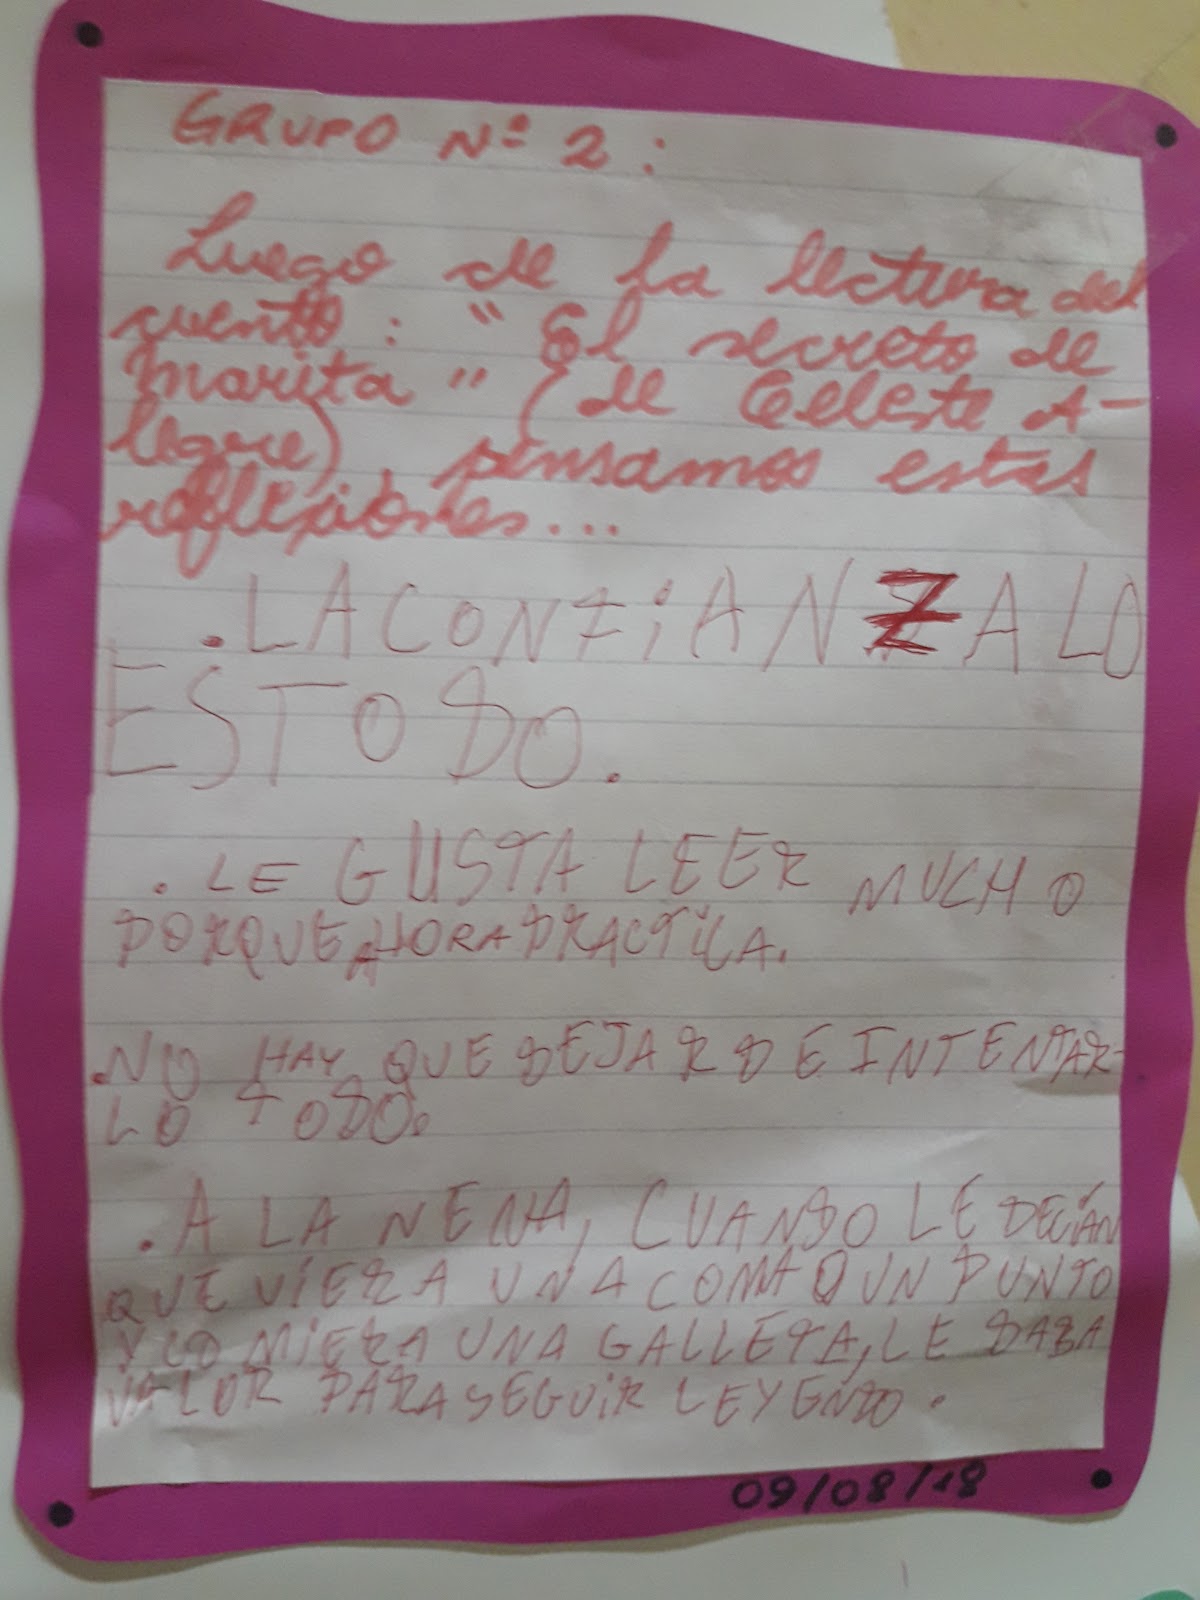 GRUPO Nº 2:
Luego de la lectura del
cuento: "El secreto de
Marita" (de Celeste A-
legre), pensamos estas
reflexiones...
.LA CONFIANZA LO
ES TODO.
. LE GUSTA LEER MUCHO
PORQUE AHORA PRACTICA.
.NO HAY QUE DEJAR DE INTENTAR-
LO TODO.
. A LA NENA, CUANDO LE DECÍAN
QUE VIERA UNA COMA O UN PUNTO
Y COMIERA UNA GALLETA, LE DABA
VALOR PARA SEGUIR LEYENDO.
09/08/18